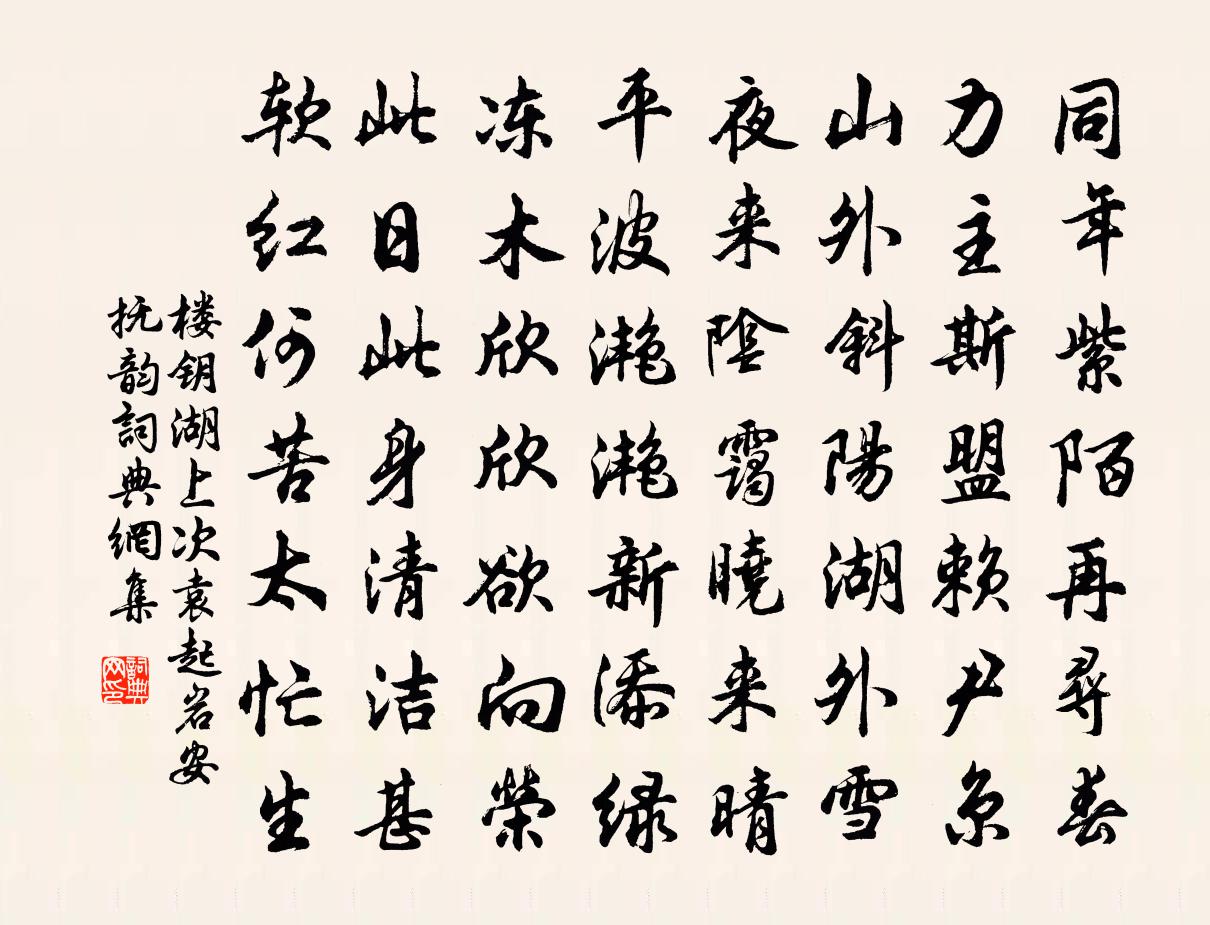 同年紫陌再尋春
力主斯盟赖尹京
山外斜陽湖外雪
夜来陰靄曉来晴
平波滟滟新添绿
冻木欣欣欲向榮
此日此身清洁甚
软红何苦太忙生
楼钥湖上次袁起岩安
抚韵詞典網集
詞典网印